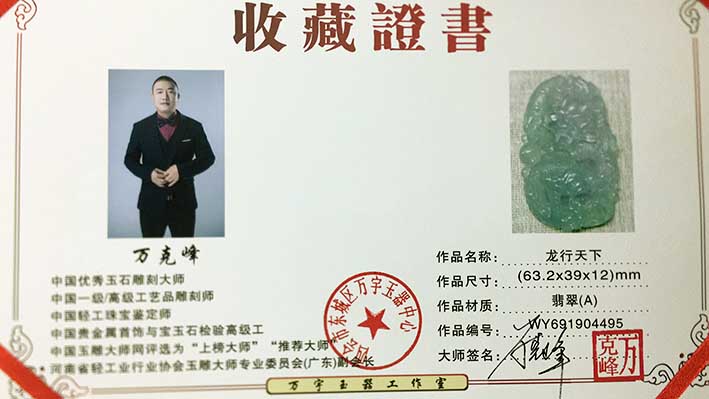 收藏證書
万克峰
中国优秀玉石雕刻大师
中国一级/高级工艺品雕刻师
中国轻工珠宝鉴定师
中国贵金属首饰与宝玉石检验高级工
中国玉雕大师网评选为“上榜大师”“推荐大师”
河南省轻工业行业协会玉雕大师专业委员会(广东)副会长
作品名称: 龙行天下
作品尺寸: (63.2x39x12)mm
作品材质: 翡翠(A)
作品编号: WY691904495
大师签名:
万克峰
四会市东城区万宇玉器中心
万宇玉器工作室